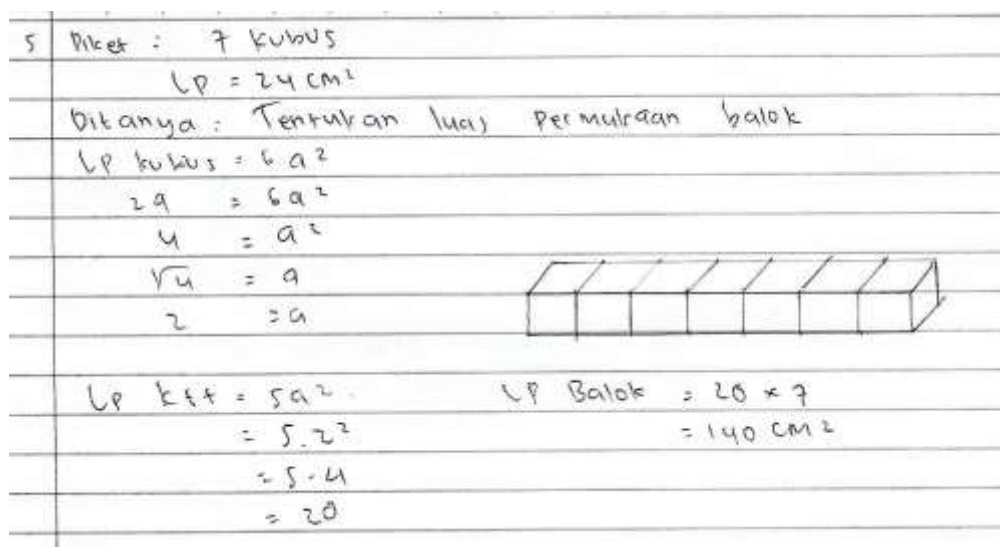 5 Diket : 7 kubus
Lp = 24 cm²
Ditanya : Tentukan luas permukaan balok
Lp kubus = 6a²
24 = 6a²
4 = a²
√4 = a
2 = a
Lp ktt = 5a².
= 5.2²
= 5.4
= 20
LP Balok = 20 × 7
= 140 cm²